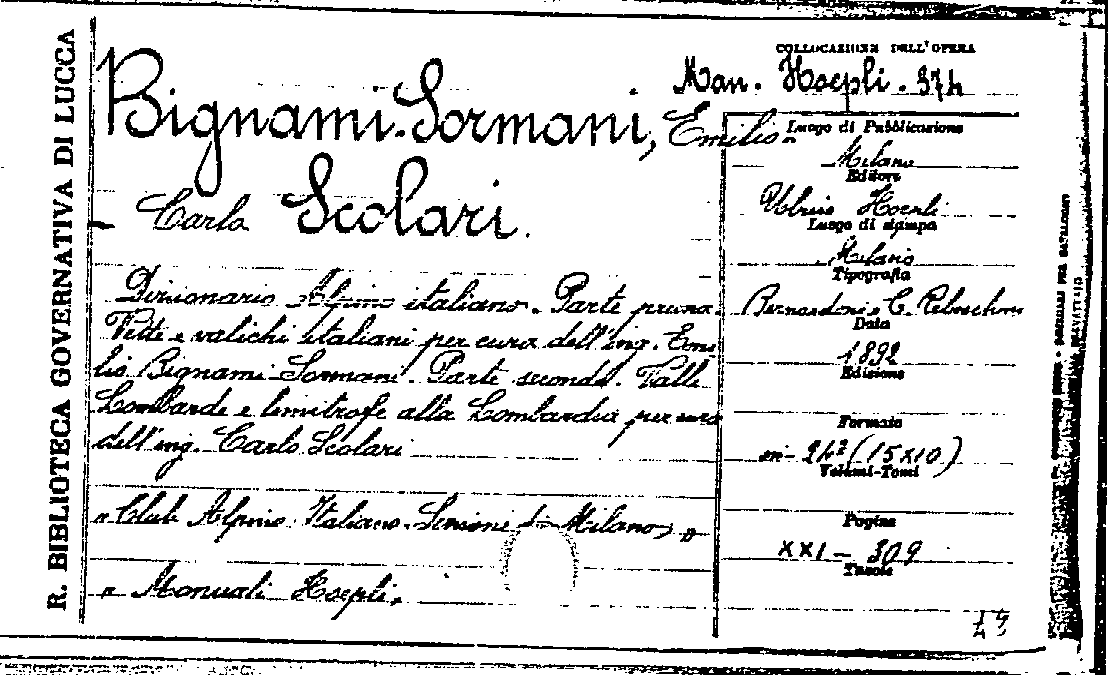 R. BIBLIOTECA GOVERNATIVA DI LUCCA
COLLOCAZIONE DELL'OPERA
Man. Hoepli. 374
Bignami-Sormani, Emilio-
- Carlo Scolari.
Dizionario Alpino italiano. Parte prima.
Vette e valichi italiani per cura dell'ing. Emi
lio Bignami Sormani. Parte seconda. Valli
Lombarde e limitrofe alla Lombardia per cura
dell'ing. Carlo Scolari
"Club Alpino Italiano. Sezione di Milano) "
" Manuali Hoepli.
Luogo di Pubblicazione
Milano
Editore
Ulrico Hoepli
Luogo di stampa
Milano
Tipografia
Bernardoni e C. Rebeschini
Data
1892
Edizione
Formato
in- 24° (15x10)
Volumi-Tomi
Pagine
XXI - 309
Tavole